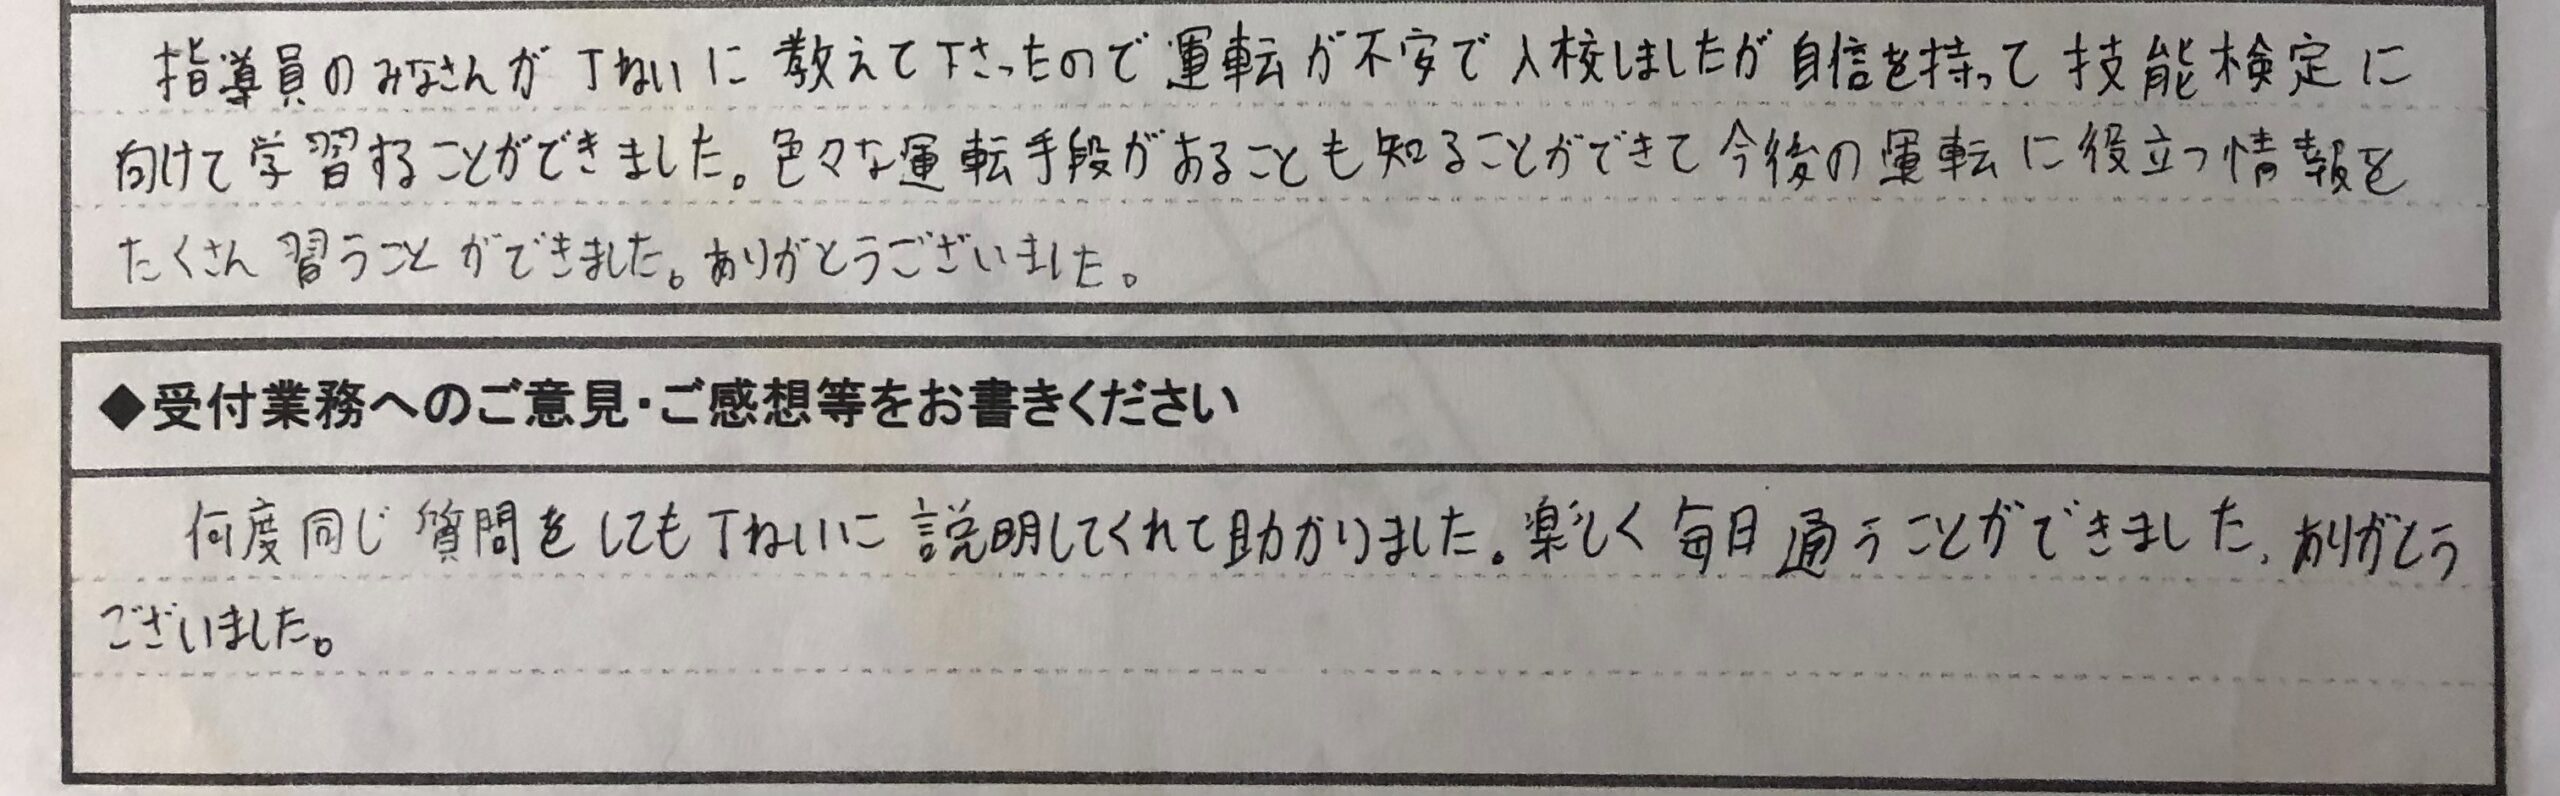 指導員のみなさんが丁ねいに教えて下さったので運転が不安で入校しましたが自信を持って技能検定に
向けて学習することができました。色々な運転手段があることも知ることができて今後の運転に役立つ情報を
たくさん習うことができました。ありがとうございました。
◆受付業務へのご意見・ご感想等をお書きください
何度同じ質問をしても丁ねいに説明してくれて助かりました。楽しく毎日通うことができました、ありがとう
ございました。